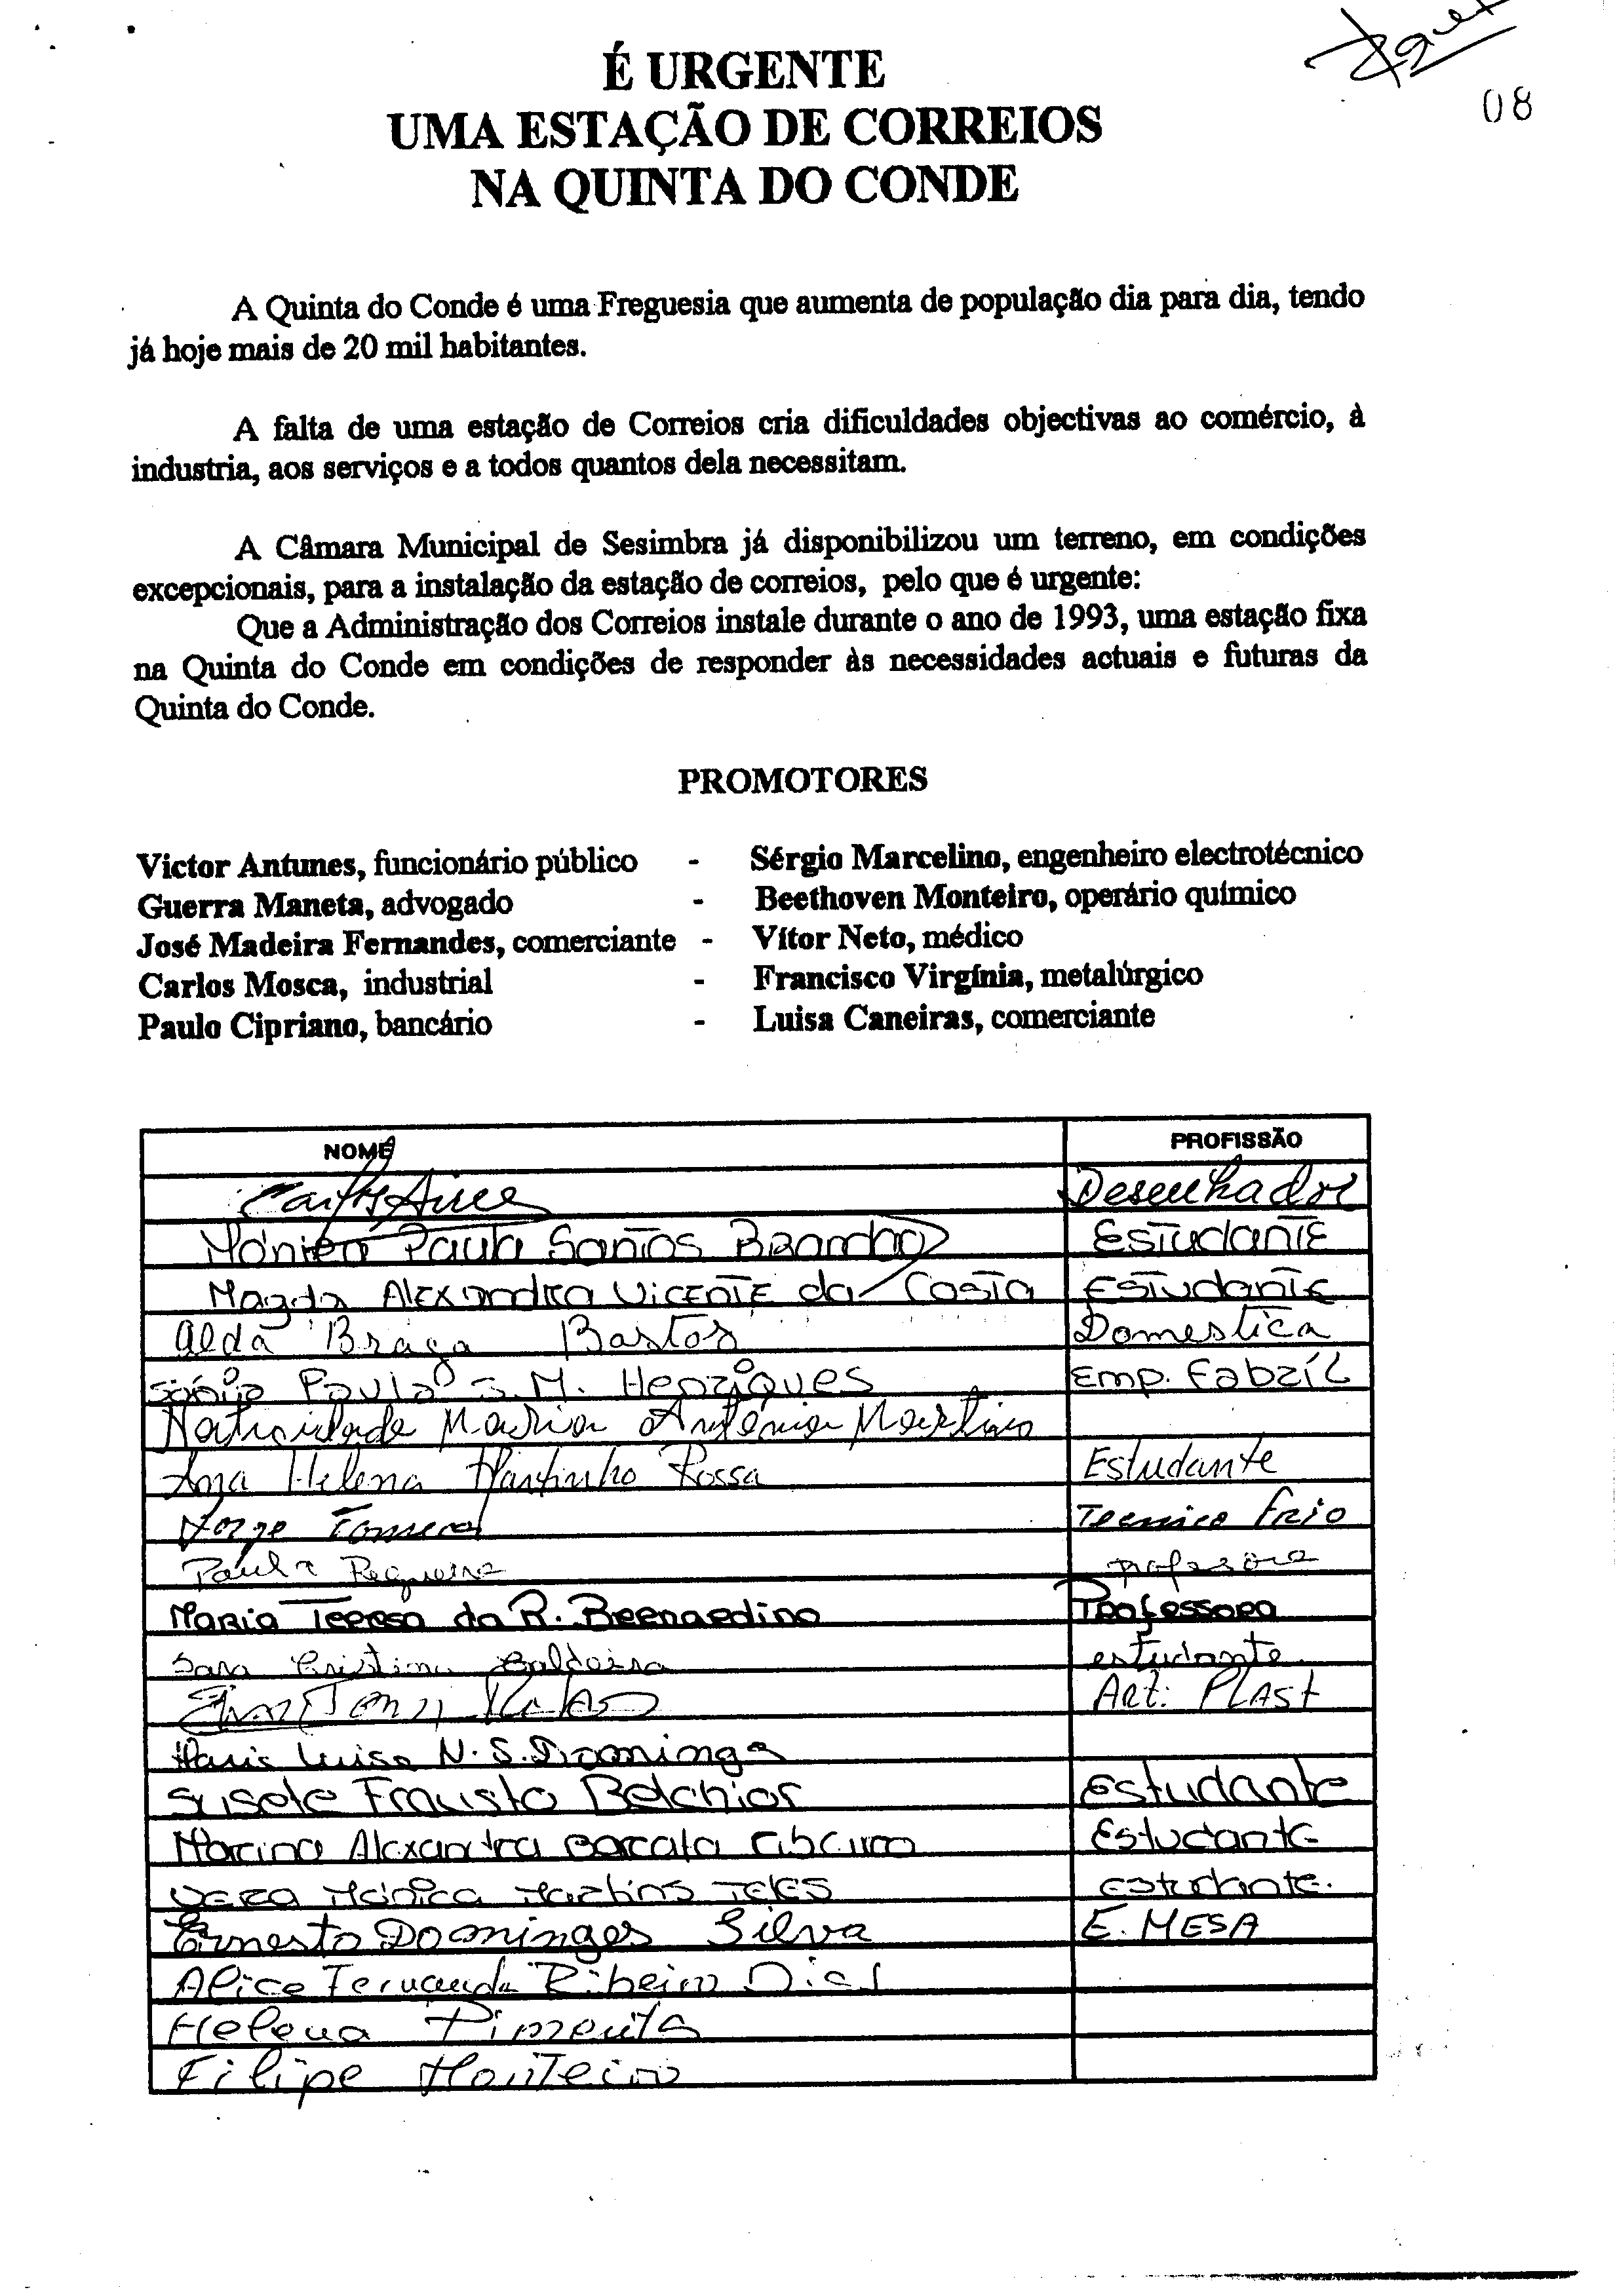 08
É URGENTE
UMA ESTAÇÃO DE CORREIOS
NA QUINTA DO CONDE
A Quinta do Conde é uma Freguesia que aumenta de população dia para dia, tendo
já hoje mais de 20 mil habitantes.
A falta de uma estação de Correios cria dificuldades objectivas ao comércio, à
industria, aos serviços e a todos quantos dela necessitam.
A Câmara Municipal de Sesimbra já disponibilizou um terreno, em condições
excepcionais, para a instalação da estação de correios, pelo que é urgente:
Que a Administração dos Correios instale durante o ano de 1993, uma estação fixa
na Quinta do Conde em condições de responder às necessidades actuais e futuras da
Quinta do Conde.
PROMOTORES
Victor Antunes, funcionário público - Sérgio Marcelino, engenheiro electrotécnico
Guerra Maneta, advogado - Beethoven Monteiro, operário químico
José Madeira Fernandes, comerciante - Vítor Neto, médico
Carlos Mosca, industrial - Francisco Virgínia, metalúrgico
Paulo Cipriano, bancário - Luisa Caneiras, comerciante
NOME PROFISSÃO
Carlos Aires Desenhador
Mónica Paula Santos Brandão Estudante
Magda Alexandra Vicente da Costa Estudante
Alda Braga Bastos Domestica
Sónia Paula S. M. Henriques Emp. Fabril
Natividade Maria Antónia Martins
Ana Helena Martinho Rossa Estudante
Jorge Fonseca Tecnico Frio
Paula Regueira professora
Maria Teresa da R. Bernardino Professora
Sara Cristina Caldeira estudante
Art. Plast
Maria Luisa N. S. Domingos
Susete Frausto Belchior Estudante
Marina Alexandra Barata Ribeiro Estudante
Vera Mónica Martins Teles estudante.
Ernesto Domingos Silva E. MESA
Alice Fernanda Ribeiro Dias
Helena Pimenta
Filipe Monteiro